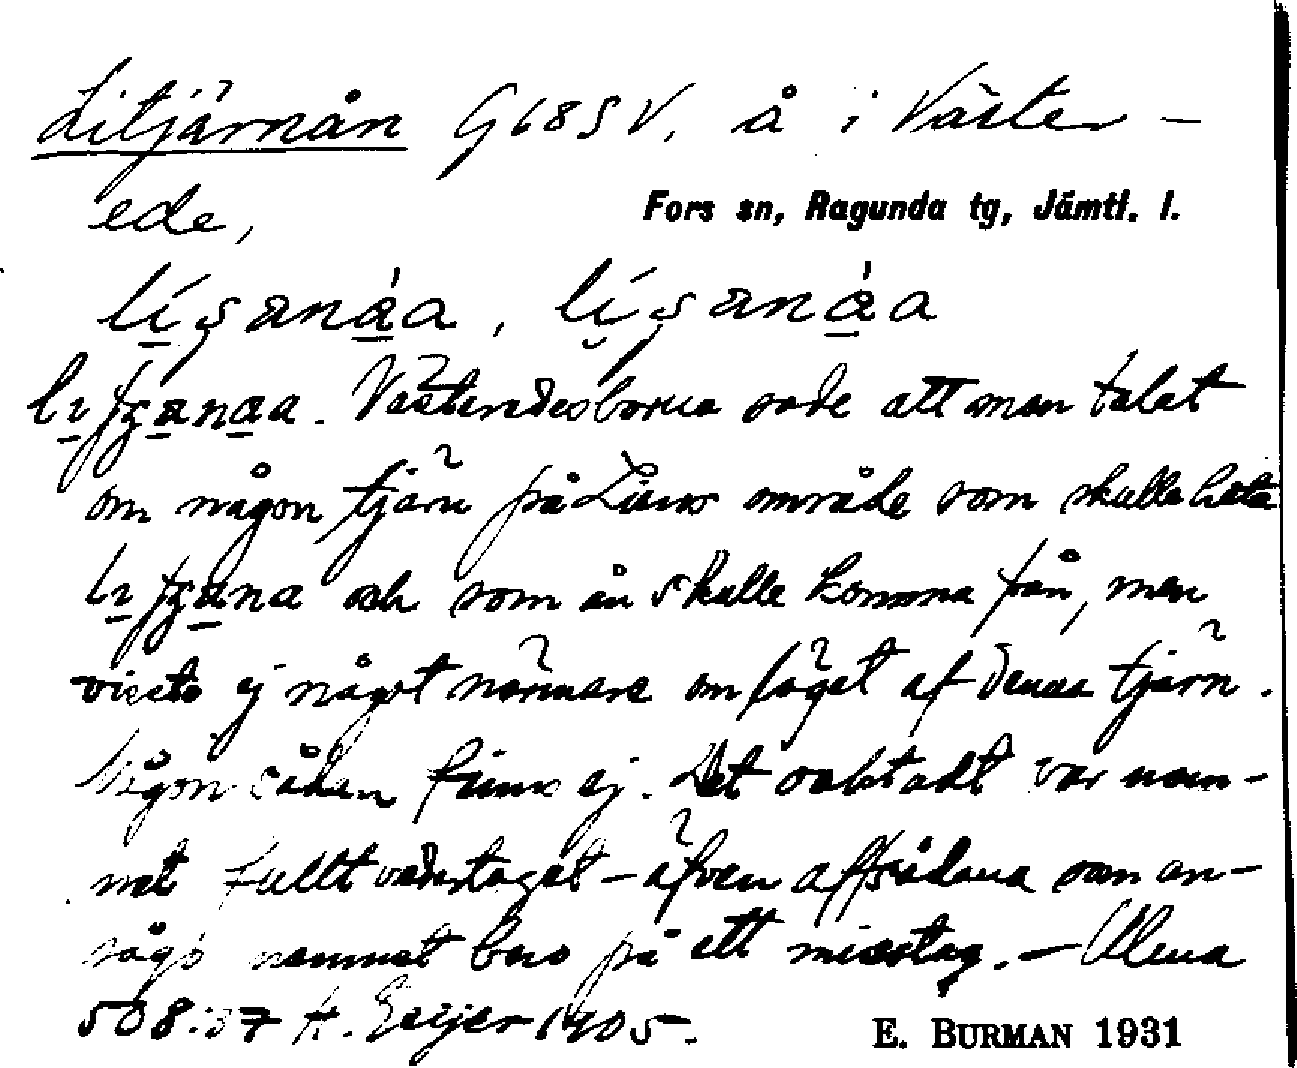 Litjärnån G 18 S V. å i Väster-
ede,
Fors sn, Ragunda tg, Jämtl. l.
Västeredesborna sade att man talat
om någon tjärn på Liens område som skulle heta
och som ån skulle komma från, men
visste ej något närmare om läget af denna tjärn.
Någon sådan finns ej. Det oaktadt var nam-
net fullt vedertaget – äfven af sådana som an-
sågo namnet bero på ett misstag. –
508:37 H. Geijer 1905.
E. BURMAN 1931